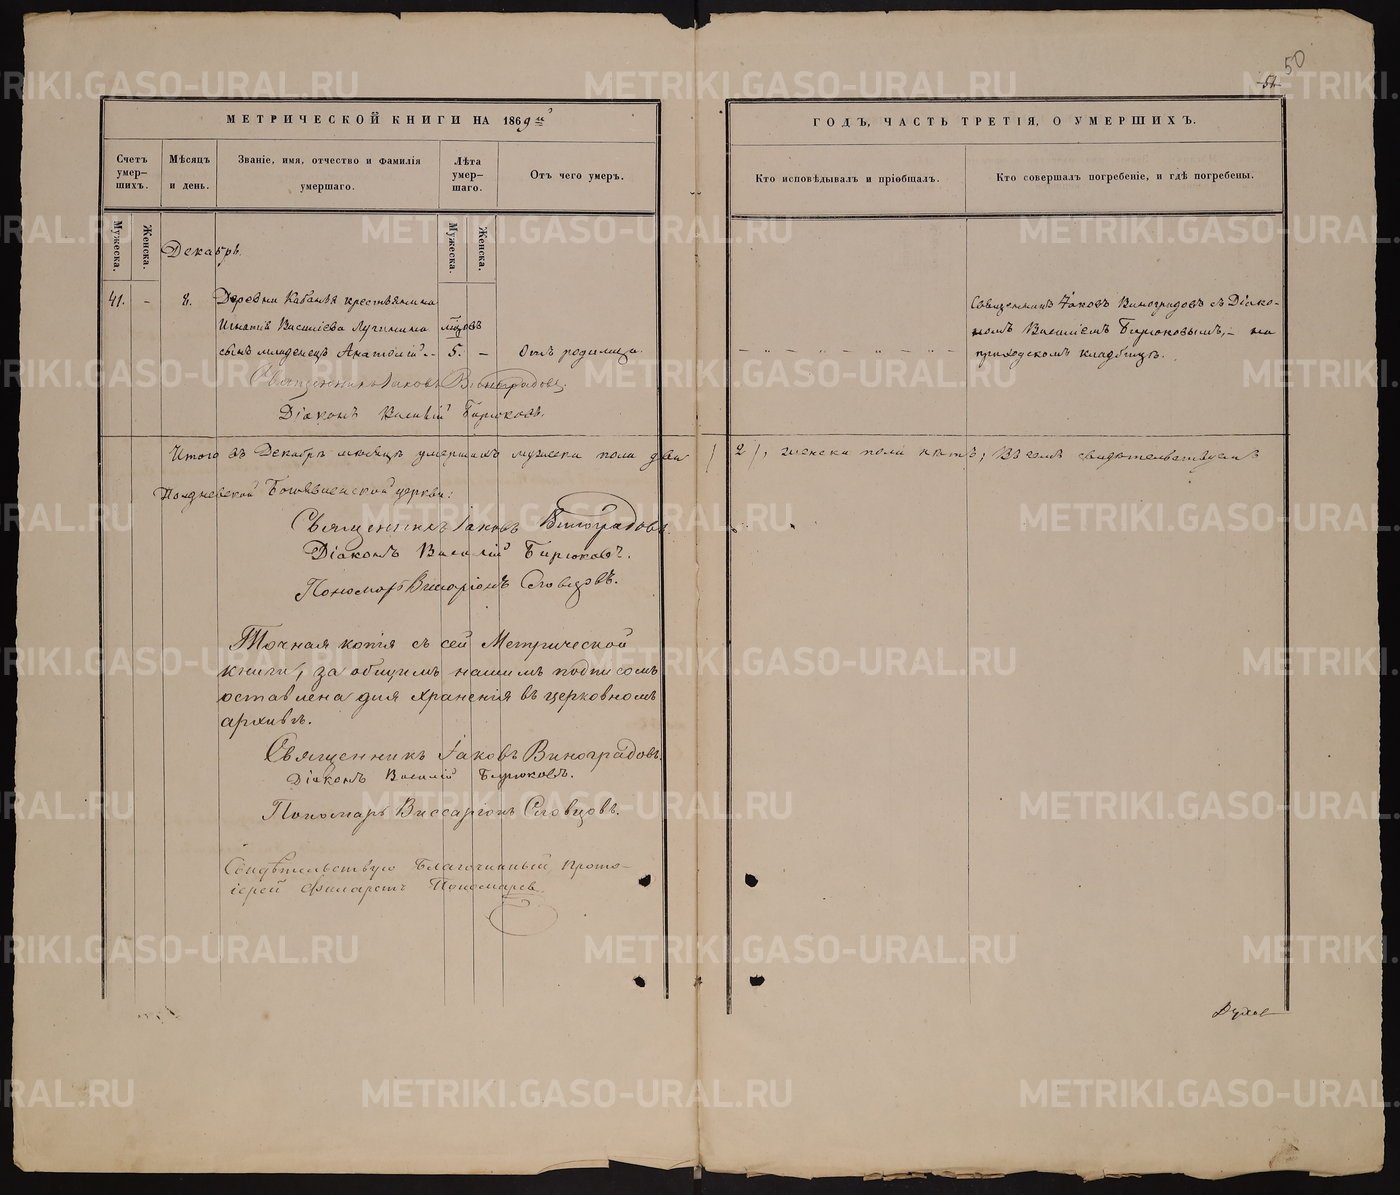 50
51
МЕТРИЧЕСКОЙ КНИГИ НА 1869й
ГОДЪ, ЧАСТЬ ТРЕТІЯ, О УМЕРШИХЪ.
Счетъ умер-шихъ.
Мѣсяцъ и день.
Званіе, имя, отчество и фамилія умершаго.
Лѣта умер-шаго.
Отъ чего умеръ.
Кто исповѣдывалъ и пріобщалъ.
Кто совершалъ погребеніе, и гдѣ погребены.
Мужеска.
Женска.
Мужеска.
Женска.
Декабрь.
41. - 8. Деревни Кабанья крестьянина
Игнатія Василіева Лугинина
сынъ младенецъ Анатолій. 5. - Отъ родимца.
Священникъ Іаковъ Виноградовъ съ Діако-
номъ Василіемъ Бирюковымъ, - на
приходскомъ кладбищѣ.
Священникъ Іаковъ Виноградовъ.
Діаконъ Василій Бирюковъ.
Итого въ Декабрѣ мѣсяцѣ умершихъ мужеска пола два / 2 /, женска пола нѣтъ; Въ чемъ свидѣтельствуемъ
Богоявленской церкви:
Священникъ Іаковъ Виноградовъ.
Діаконъ Василій Бирюковъ.
Пономарь Виссаріонъ Словцовъ.
Точная копія съ сей Метрической
книги, за общимъ нашимъ подписомъ
оставлена для храненія въ церковномъ
архивѣ.
Священникъ Іаковъ Виноградовъ.
Діаконъ Василій Бирюковъ.
Пономарь Виссаріонъ Словцовъ.
Свидѣтельствую Благочинный Прото-
іерей Филаретъ Пономаревъ
METRIKI.GASO-URAL.RU